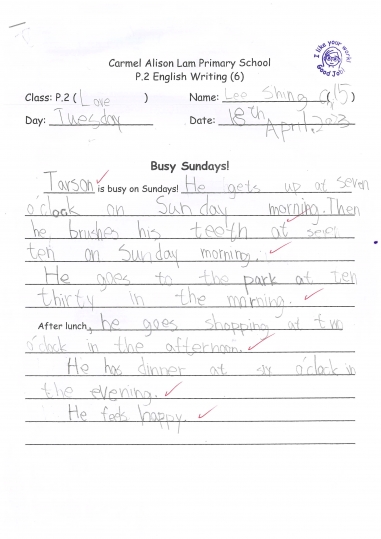 I like your work!
Good Job!
Carmel Alison Lam Primary School
P.2 English Writing (6)
Class: P.2 ( Love ) Name: Lee Shing (15)
Day: Tuesday Date: 18th April, 2023
Busy Sundays!
Tarson is busy on Sundays! He gets up at seven
o'clock on Sunday morning. Then
he brushes his teeth at seven
ten on Sunday morning.
He goes to the park at ten
thirty in the morning.
After lunch, he goes shopping at two
o'clock in the afternoon.
He has dinner at six o'clock in
the evening.
He feels happy.